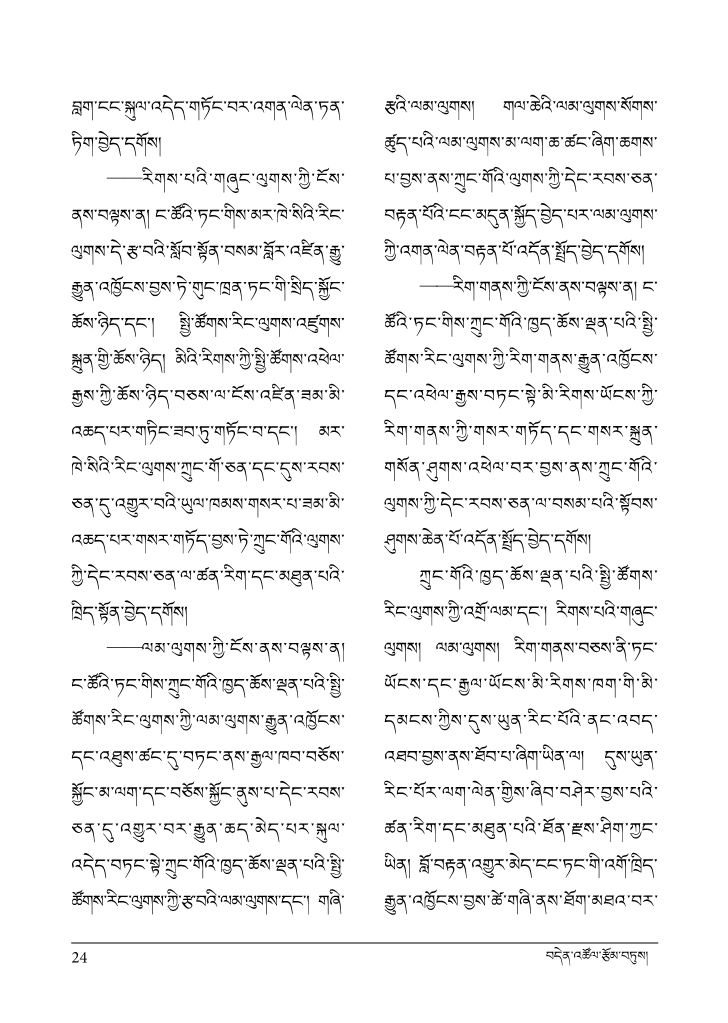 བླག་ངང་སྐུལ་འདེད་གཏོང་བར་འགན་ལེན་ཏན་
ཏིག་བྱེད་དགོས།
——རིགས་པའི་གཞུང་ལུགས་ཀྱི་ངོས་
ནས་བལྟས་ན། ང་ཚོའི་ཏང་གིས་མར་ཁེ་སིའི་རིང་
ལུགས་དེ་རྩ་བའི་སློབ་སྟོན་བསམ་བློར་འཛིན་རྒྱུ་
རྒྱུན་འཁྱོངས་བྱས་ཏེ་གུང་ཁྲན་ཏང་གི་སྲིད་སྐྱོང་
ཆོས་ཉིད་དང་། སྤྱི་ཚོགས་རིང་ལུགས་འཛུགས་
སྐྲུན་གྱི་ཆོས་ཉིད། མིའི་རིགས་ཀྱི་སྤྱི་ཚོགས་འཕེལ་
རྒྱས་ཀྱི་ཆོས་ཉིད་བཅས་ལ་ངོས་འཛིན་ཟམ་མི་
འཆད་པར་གཏིང་ཟབ་ཏུ་གཏོང་བ་དང་། མར་
ཁེ་སིའི་རིང་ལུགས་ཀྲུང་གོ་ཅན་དང་དུས་རབས་
ཅན་དུ་འགྱུར་བའི་ཡུལ་ཁམས་གསར་པ་ཟམ་མི་
འཆད་པར་གསར་གཏོད་བྱས་ཏེ་ཀྲུང་གོའི་ལུགས་
ཀྱི་དེང་རབས་ཅན་ལ་ཚན་རིག་དང་མཐུན་པའི་
ཁྲིད་སྟོན་བྱེད་དགོས།
——ལམ་ལུགས་ཀྱི་ངོས་ནས་བལྟས་ན།
ང་ཚོའི་ཏང་གིས་ཀྲུང་གོའི་ཁྱད་ཆོས་ལྡན་པའི་སྤྱི་
ཚོགས་རིང་ལུགས་ཀྱི་ལམ་ལུགས་རྒྱུན་འཁྱོངས་
དང་འཐུས་ཚང་དུ་བཏང་ནས་རྒྱལ་ཁབ་བཅོས་
སྐྱོང་མ་ལག་དང་བཅོས་སྐྱོང་ནུས་པ་དེང་རབས་
ཅན་དུ་འགྱུར་བར་རྒྱུན་ཆད་མེད་པར་སྐུལ་
འདེད་བཏང་སྟེ་ཀྲུང་གོའི་ཁྱད་ཆོས་ལྡན་པའི་སྤྱི་
ཚོགས་རིང་ལུགས་ཀྱི་རྩ་བའི་ལམ་ལུགས་དང་། གཞི་
རྩའི་ལམ་ལུགས། གལ་ཆེའི་ལམ་ལུགས་སོགས་
ཚུད་པའི་ལམ་ལུགས་མ་ལག་ཆ་ཚང་ཞིག་ཆགས་
པ་བྱས་ནས་ཀྲུང་གོའི་ལུགས་ཀྱི་དེང་རབས་ཅན་
བརྟན་པོའི་ངང་མདུན་སྐྱོད་བྱེད་པར་ལམ་ལུགས་
ཀྱི་འགན་ལེན་བརྟན་པོ་འདོན་སྤྲོད་བྱེད་དགོས།
——རིག་གནས་ཀྱི་ངོས་ནས་བལྟས་ན། ང་
ཚོའི་ཏང་གིས་ཀྲུང་གོའི་ཁྱད་ཆོས་ལྡན་པའི་སྤྱི་
ཚོགས་རིང་ལུགས་ཀྱི་རིག་གནས་རྒྱུན་འཁྱོངས་
དང་འཕེལ་རྒྱས་བཏང་སྟེ་མི་རིགས་ཡོངས་ཀྱི་
རིག་གནས་ཀྱི་གསར་གཏོད་དང་གསར་སྐྲུན་
གསོན་ཤུགས་འཕེལ་བར་བྱས་ནས་ཀྲུང་གོའི་
ལུགས་ཀྱི་དེང་རབས་ཅན་ལ་བསམ་པའི་སྟོབས་
ཤུགས་ཆེན་པོ་འདོན་སྤྲོད་བྱེད་དགོས།
ཀྲུང་གོའི་ཁྱད་ཆོས་ལྡན་པའི་སྤྱི་ཚོགས་
རིང་ལུགས་ཀྱི་འགྲོ་ལམ་དང་། རིགས་པའི་གཞུང་
ལུགས། ལམ་ལུགས། རིག་གནས་བཅས་ནི་ཏང་
ཡོངས་དང་རྒྱལ་ཡོངས་མི་རིགས་ཁག་གི་མི་
དམངས་ཀྱིས་དུས་ཡུན་རིང་པོའི་ནང་འབད་
འཐབ་བྱས་ནས་ཐོབ་པ་ཞིག་ཡིན་ལ། དུས་ཡུན་
རིང་པོར་ལག་ལེན་གྱིས་ཞིབ་བཤེར་བྱས་པའི་
ཚན་རིག་དང་མཐུན་པའི་ཐོན་རྫས་ཤིག་ཀྱང་
ཡིན། བློ་བརྟན་འགྱུར་མེད་ངང་ཏང་གི་འགོ་ཁྲིད་
རྒྱུན་འཁྱོངས་བྱས་ཚེ་གཞི་ནས་ཐོག་མཐའ་བར་
24
བདེན་འཚོལ་རྩོམ་བཏུས།